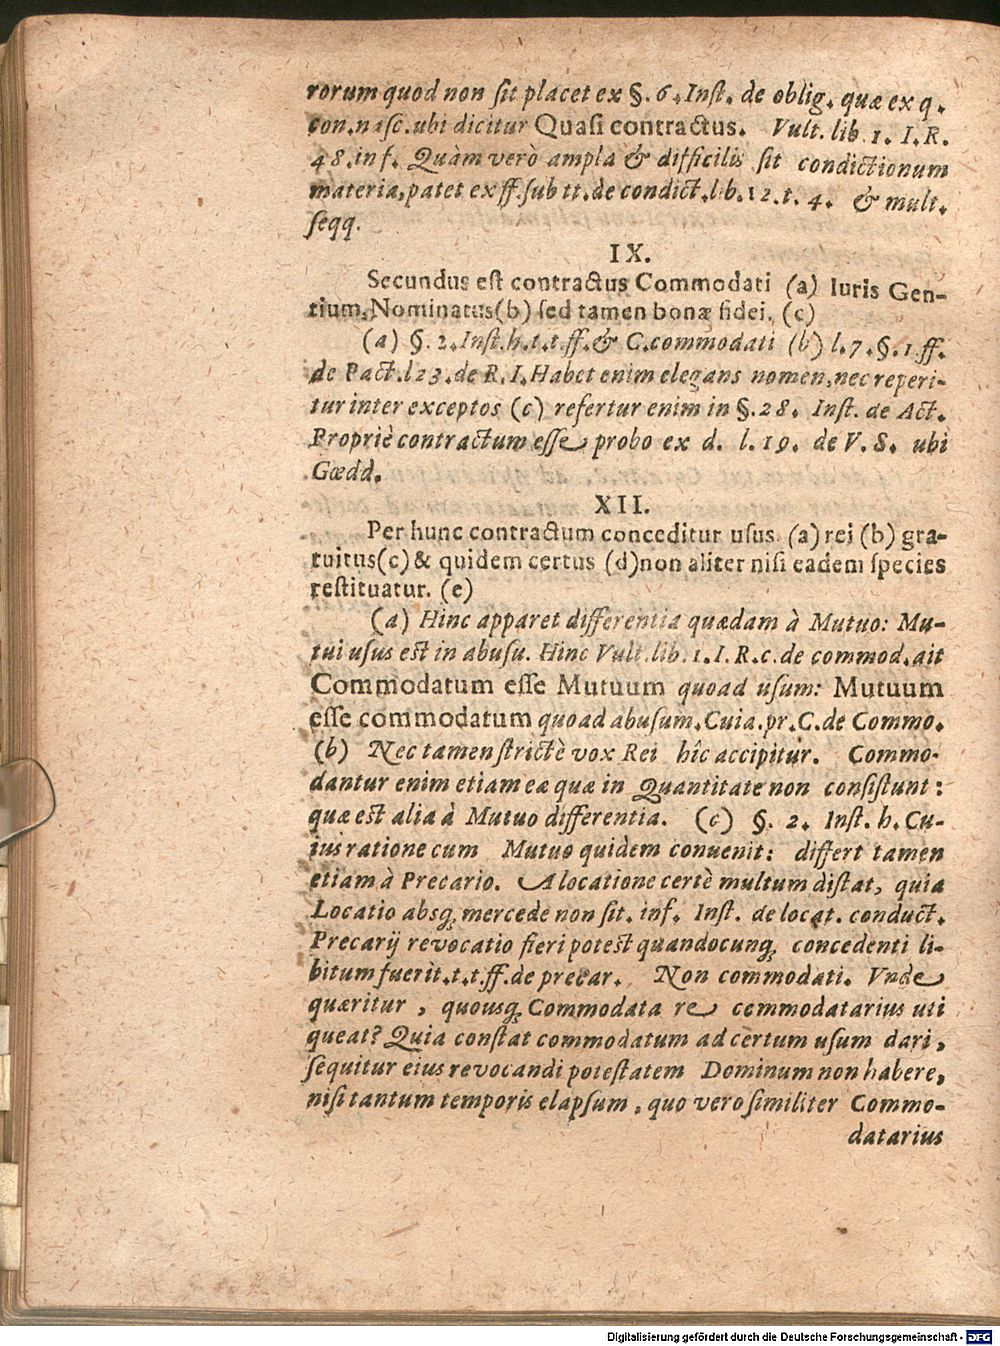 rorum quod non ſit placet ex §. 6. Inſt. de oblig. quæ ex q.
con. naſc. ubi dicitur Quaſi contractus. Vult. lib. 1. I. R.
48. inf. Quàm verò ampla & difficilis ſit condictionum
materia, patet ex ff. ſub tt. de condict. lib. 12. t. 4. & mult.
ſeqq.
IX.
Secundus eſt contractus Commodati (a) Iuris Gen-
tium, Nominatus (b) ſed tamen bonæ fidei. (c)
(a) §. 2. Inſt. h. t. t. ff. & C. commodati (b) l. 7. §. 1. ff.
de Pact. l 23. de R. I. Habet enim elegans nomen, nec reperi-
tur inter exceptos (c) refertur enim in §. 28. Inſt. de Act.
Propriè contractum eſſe probo ex d. l. 19. de V. S. ubi
Gœdd.
XII.
Per hunc contractum conceditur uſus (a) rei (b) gra-
tuitus (c) & quidem certus (d) non aliter niſi eadem ſpecies
reſtituatur. (e)
(a) Hinc apparet differentia quædam à Mutuo: Mu-
tui uſus eſt in abuſu. Hinc Vult. lib. 1. I. R. c. de commod. ait
Commodatum eſſe Mutuum quoad uſum: Mutuum
eſſe commodatum quoad abuſum. Cuia. pr. C. de Commo.
(b) Nec tamen ſtrictè vox Rei hîc accipitur. Commo-
dantur enim etiam ea quæ in Quantitate non conſiſtunt:
quæ eſt alia à Mutuo differentia. (c) §. 2. Inſt. h. Cu-
ius ratione cum Mutuo quidem conuenit: differt tamen
etiam à Precario. A locatione certè multum diſtat, quia
Locatio absq; mercede non ſit. inf. Inſt. de locat. conduct.
Precarij revocatio fieri poteſt quandocunq; concedenti li-
bitum fuerit. t. t. ff. de precar. Non commodati. Vnde
quæritur, quousq; Commodata re cemmodatarius uti
queat? Quia conſtat commodatum ad certum uſum dari,
ſequitur eius revocandi poteſtatem Dominum non habere,
niſi tantum temporis elapſum, quo veroſimiliter Commo-
datarius
Digitalisierung gefördert durch die Deutsche Forschungsgemeinschaft - DFG